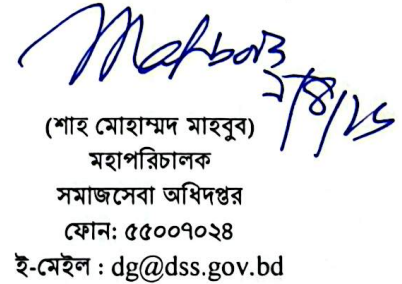 Mahbub
(শাহ মোহাম্মদ মাহবুব)
মহাপরিচালক
সমাজসেবা অধিদপ্তর
ফোন: ৫৫০০৭০২৪
ই-মেইল : dg@dss.gov.bd